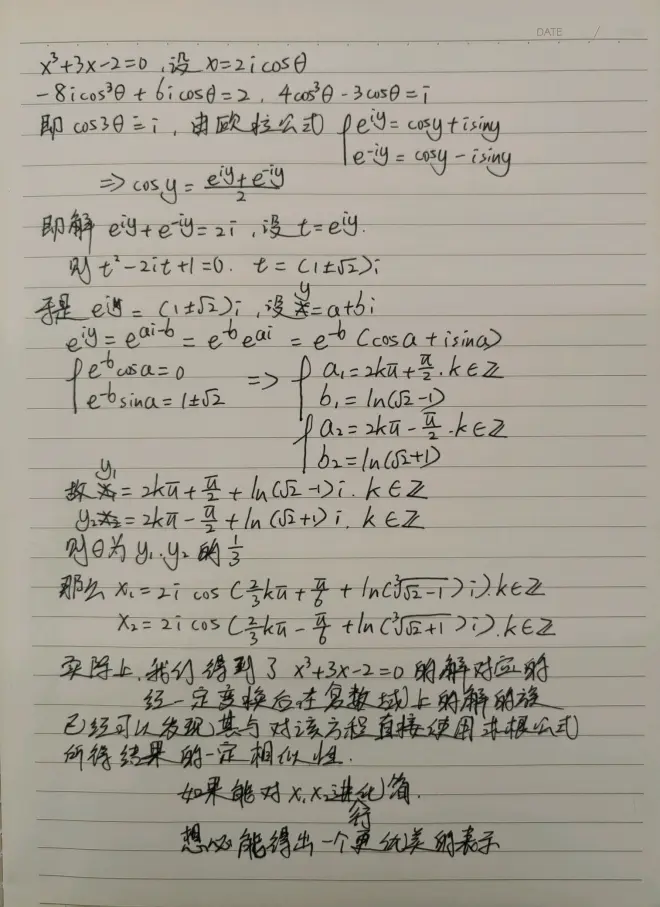 DATE /
x³+3x-2=0,设x=2icosθ
-8icos³θ+6icosθ=2,4cos³θ-3cosθ=i
即cos3θ=i,由欧拉公式{e^{iy}=cosy+isiny
e^{-iy}=cosy-isiny
⇒cosy=\frac{e^{iy}+e^{-iy}}{2}
即解e^{iy}+e^{-iy}=2i,设t=e^{iy}.
则t²-2it+1=0. t=(1±√2)i
于是e^{iy}=(1±√2)i,设y=a+bi
e^{iy}=e^{ai-b}=e^{-b}e^{ai}=e^{-b}(cosa+isina)
{e^{-b}cosa=0 ⇒ {a₁=2kπ+\frac{π}{2}.k∈ℤ
e^{-b}sina=1±√2 b₁=ln(√2-1)
{a₂=2kπ-\frac{π}{2}.k∈ℤ
b₂=ln(√2+1)
故y₁=2kπ+\frac{π}{2}+ln(√2-1)i.k∈ℤ
y₂=2kπ-\frac{π}{2}+ln(√2+1)i.k∈ℤ
则θ为y₁.y₂的\frac{1}{3}
那么x₁=2icos(\frac{2}{3}kπ+\frac{π}{6}+ln(\sqrt[3]{√2-1})i).k∈ℤ
x₂=2icos(\frac{2}{3}kπ-\frac{π}{6}+ln(\sqrt[3]{√2+1})i).k∈ℤ
实际上,我们得到了x³+3x-2=0的解对应的
经一定变换后在复数域上的解的族
已经可以发现其与对该方程直接使用求根公式
所得结果的一定相似性.
如果能对x₁x₂进行化简.
想必能得出一个更优美的表示